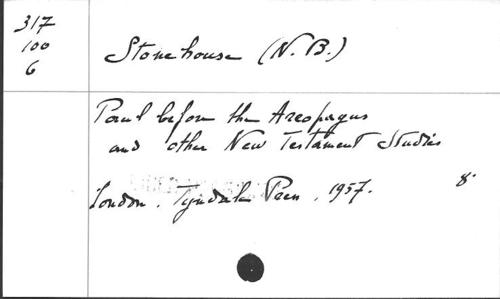 317
100
6
Stonehouse (N. B.)
Paul before the Areopagus
and other New Testament Studies
London, Tyndale Press, 1957. 8°